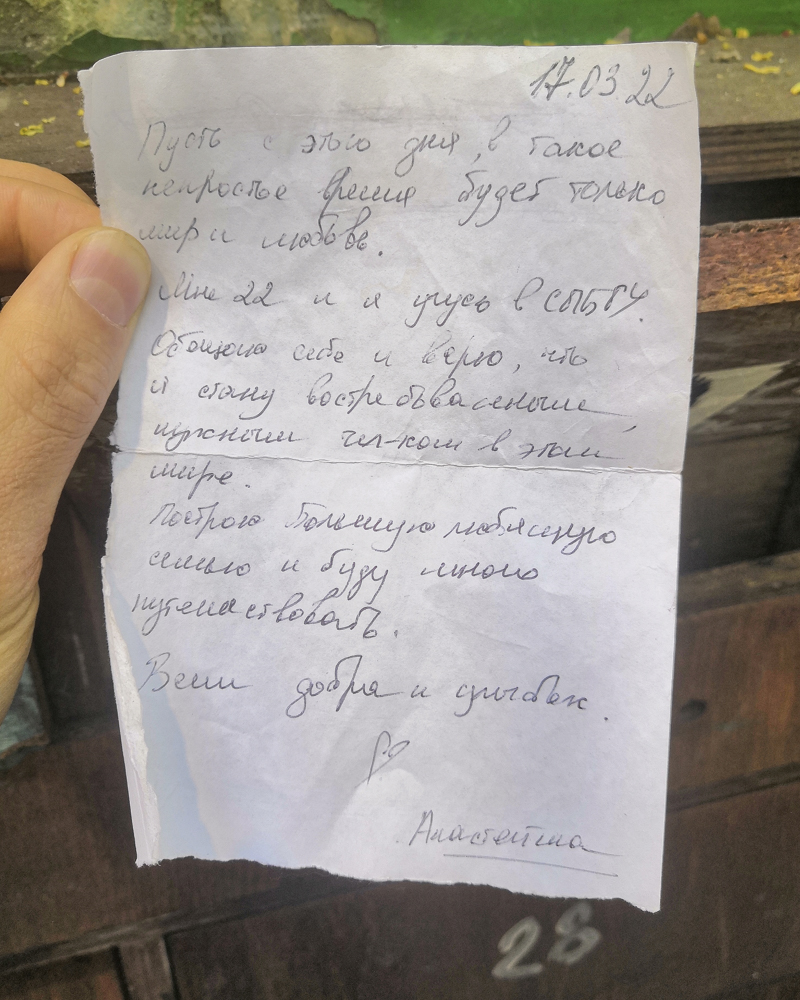 17.03.22
Пусть с этого дня, в такое
непростое время будет только
мир и любовь.
Мне 22 и я учусь в СПБГУ.
Обещаю себе и верю, что
я стану востребованным,
нужным чел-ком в этом
мире.
Построю большую любящую
семью и буду много
путешествовать.
Всем добра и улыбок.
Анастасия
28